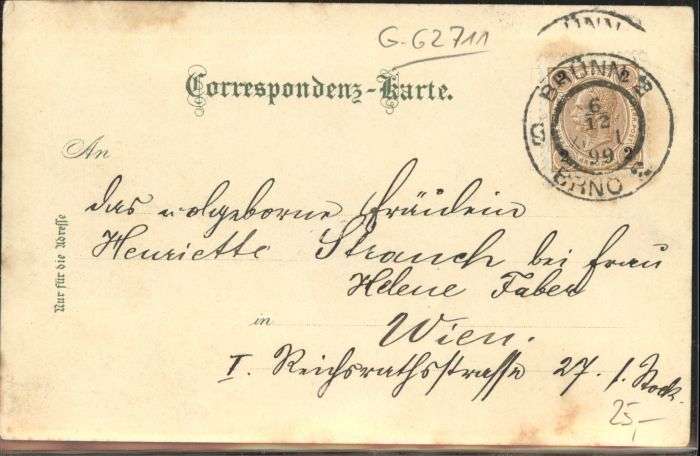 G-62711
BRÜNN
Correspondenz-Karte.
BRÜNN
6
12
99
BRNO
An
das wolgeborne Fräulein
Henriette Strauch bei Frau
Helene Faber
in
Wien.
I. Reichsrathsstrasse 27. 1. Stock.
25,-
Nur für die Adresse